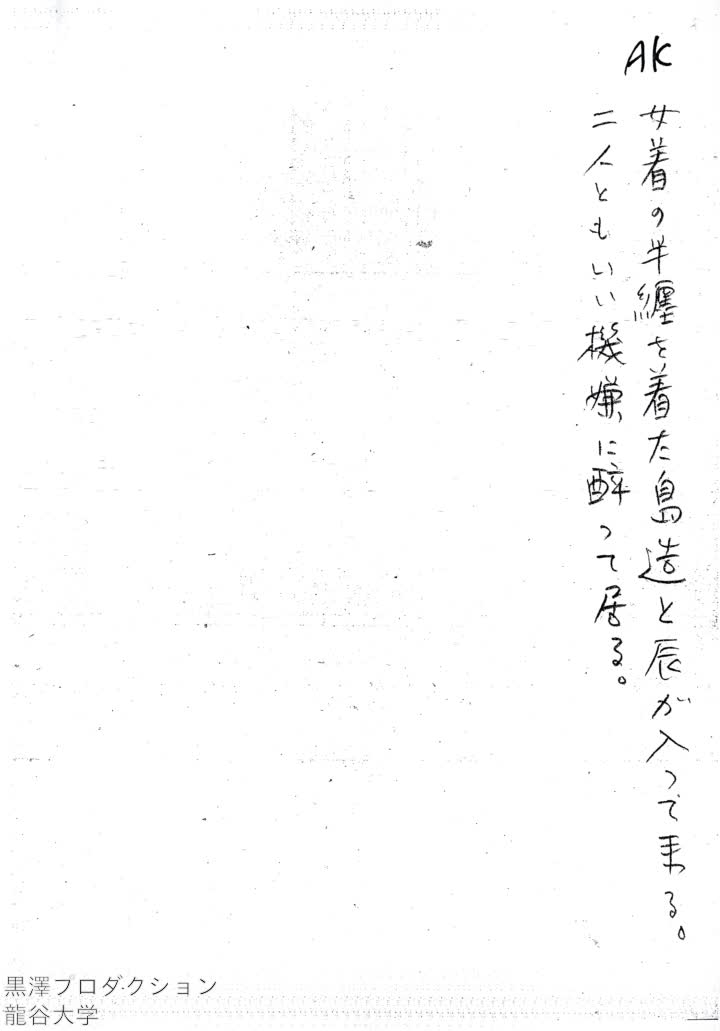 AK
女着の半纏を着た島造と辰が入つて来る。
二人ともいい機嫌に酔って居る。
黒澤プロダクション
龍谷大学